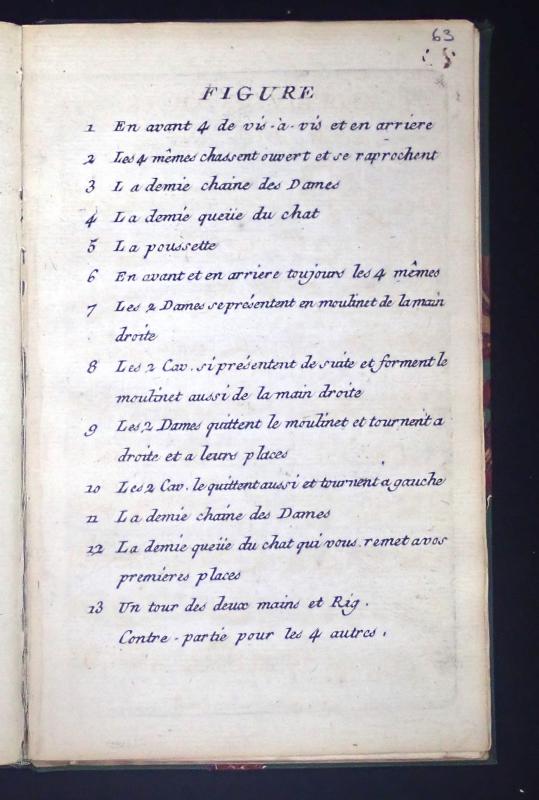 63
FIGURE
1 En avant 4 de vis-à-vis et en arriere
2 Les 4 mêmes chassent ouvert et se raprochent
3 La demie chaine des Dames
4 La demie queüe du chat
5 La poussette
6 En avant et en arriere toujours les 4 mêmes
7 Les 2 Dames se présentent en moulinet de la main
droite
8 Les 2 Cav. si présentent de suite et forment le
moulinet aussi de la main droite
9 Les 2 Dames quittent le moulinet et tournent a
droite et a leurs places
10 Les 2 Cav. le quittent aussi et tournent a gauche
11 La demie chaine des Dames
12 La demie queüe du chat qui vous remet a vos
premieres places
13 Un tour des deux mains et Rig.
Contre-partie pour les 4 autres.